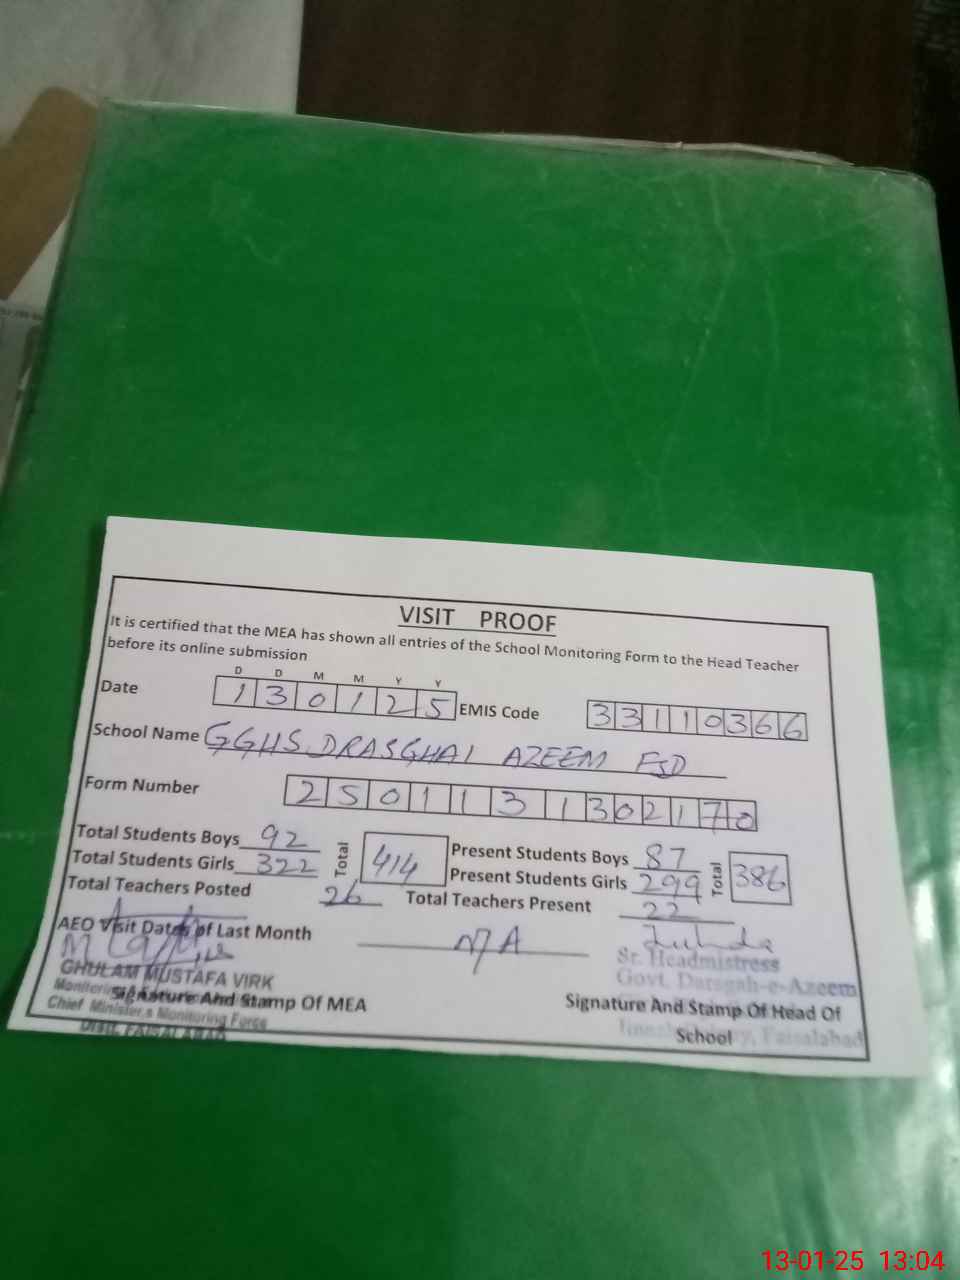 VISIT PROOF
It is certified that the MEA has shown all entries of the School Monitoring Form to the Head Teacher
before its online submission
D D M M Y Y
Date 1 3 0 1 2 5 EMIS Code 3 3 1 1 0 3 6 6
School Name GGHS DRASGHAI AZEEM FSD
Form Number 2 5 0 1 1 3 1 3 0 2 1 7 0
Total Students Boys 92 Total 414 Present Students Boys 87 Total 386
Total Students Girls 322 Present Students Girls 299
Total Teachers Posted 26 Total Teachers Present 22
AEO Visit Dates of Last Month N/A
Sr. Headmistress
GHULAM MUSTAFA VIRK Govt. Darsgah-e-Azeem
Signature And Stamp Of MEA Signature And Stamp Of Head Of
Chief Minister,s Monitoring Force
School Faisalabad
Distt. FAISALABAD
13-01-25 13:04